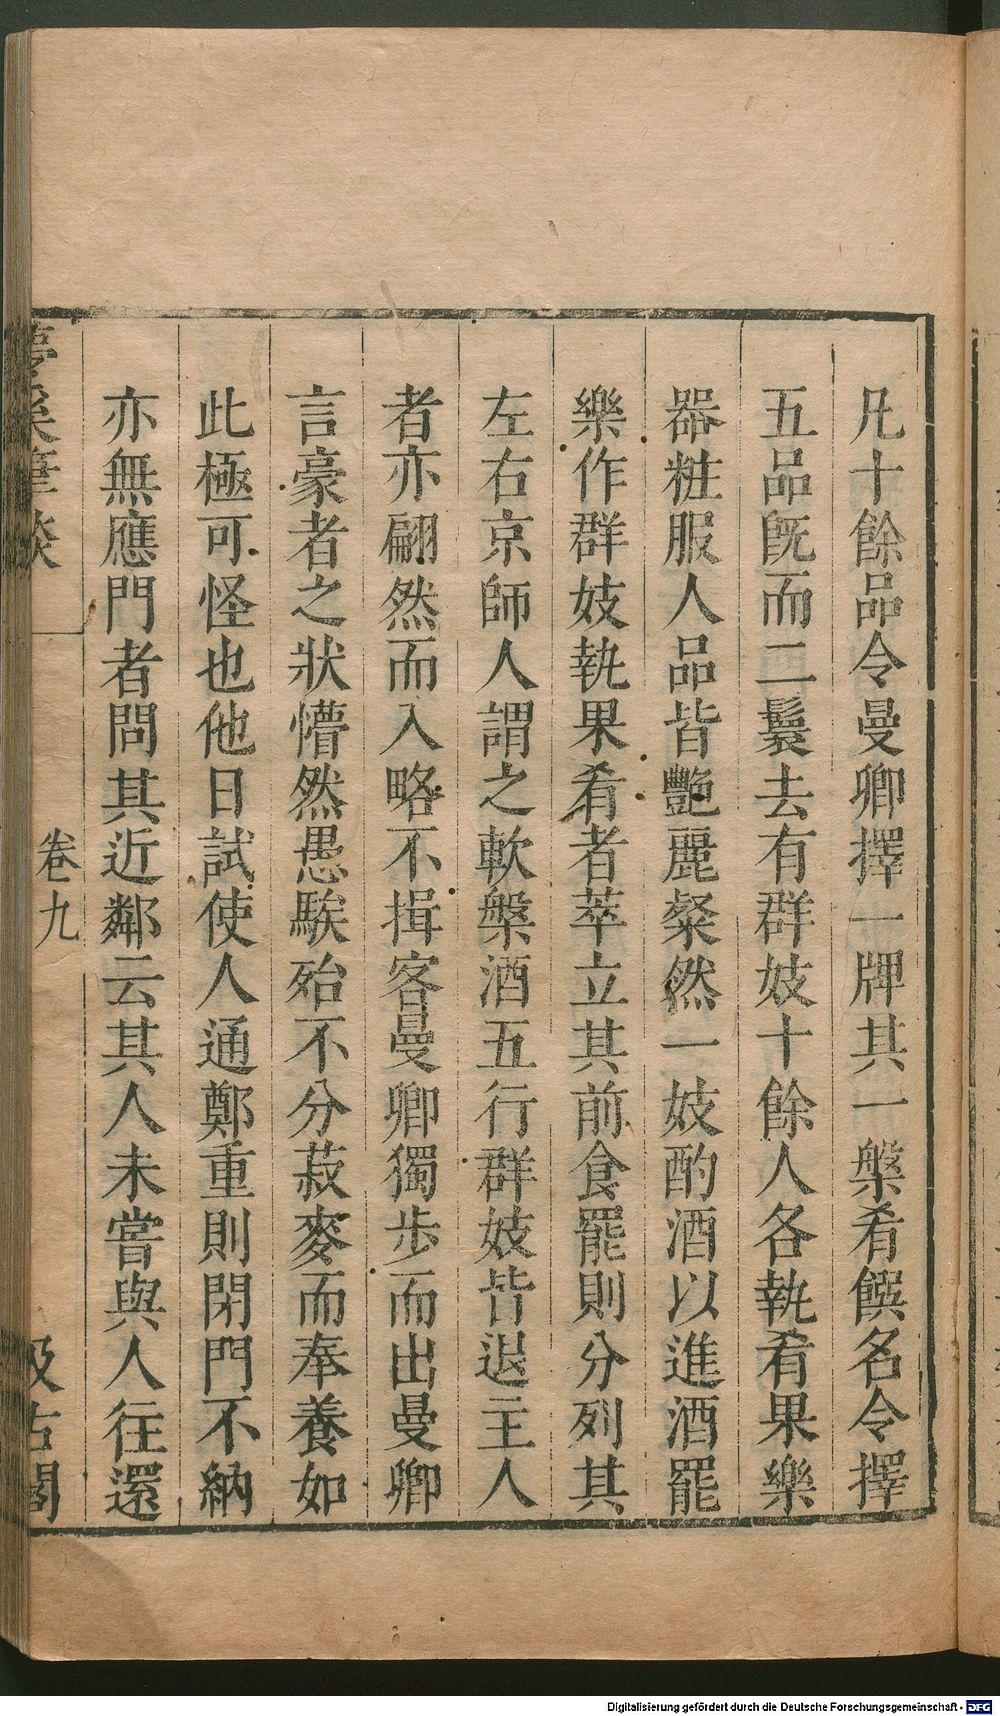 凡十餘品令曼卿擇一牌其一槃肴饌名令擇
五品旣而二鬟去有群妓十餘人各執肴果樂
器粧服人品皆艷麗粲然一妓酌酒以進酒罷
樂作群妓執果肴者萃立其前食罷則分列其
左右京師人謂之軟槃酒五行群妓皆退主人
者亦翩然而入略不揖客曼卿獨步而出曼卿
言豪者之狀懵然愚騃殆不分菽麥而奉養如
此極可怪也他日試使人通鄭重則閉門不納
亦無應門者問其近鄰云其人未嘗與人往還
夢溪筆談
卷九
汲古閣
Digitalisierung gefördert durch die Deutsche Forschungsgemeinschaft - DFG